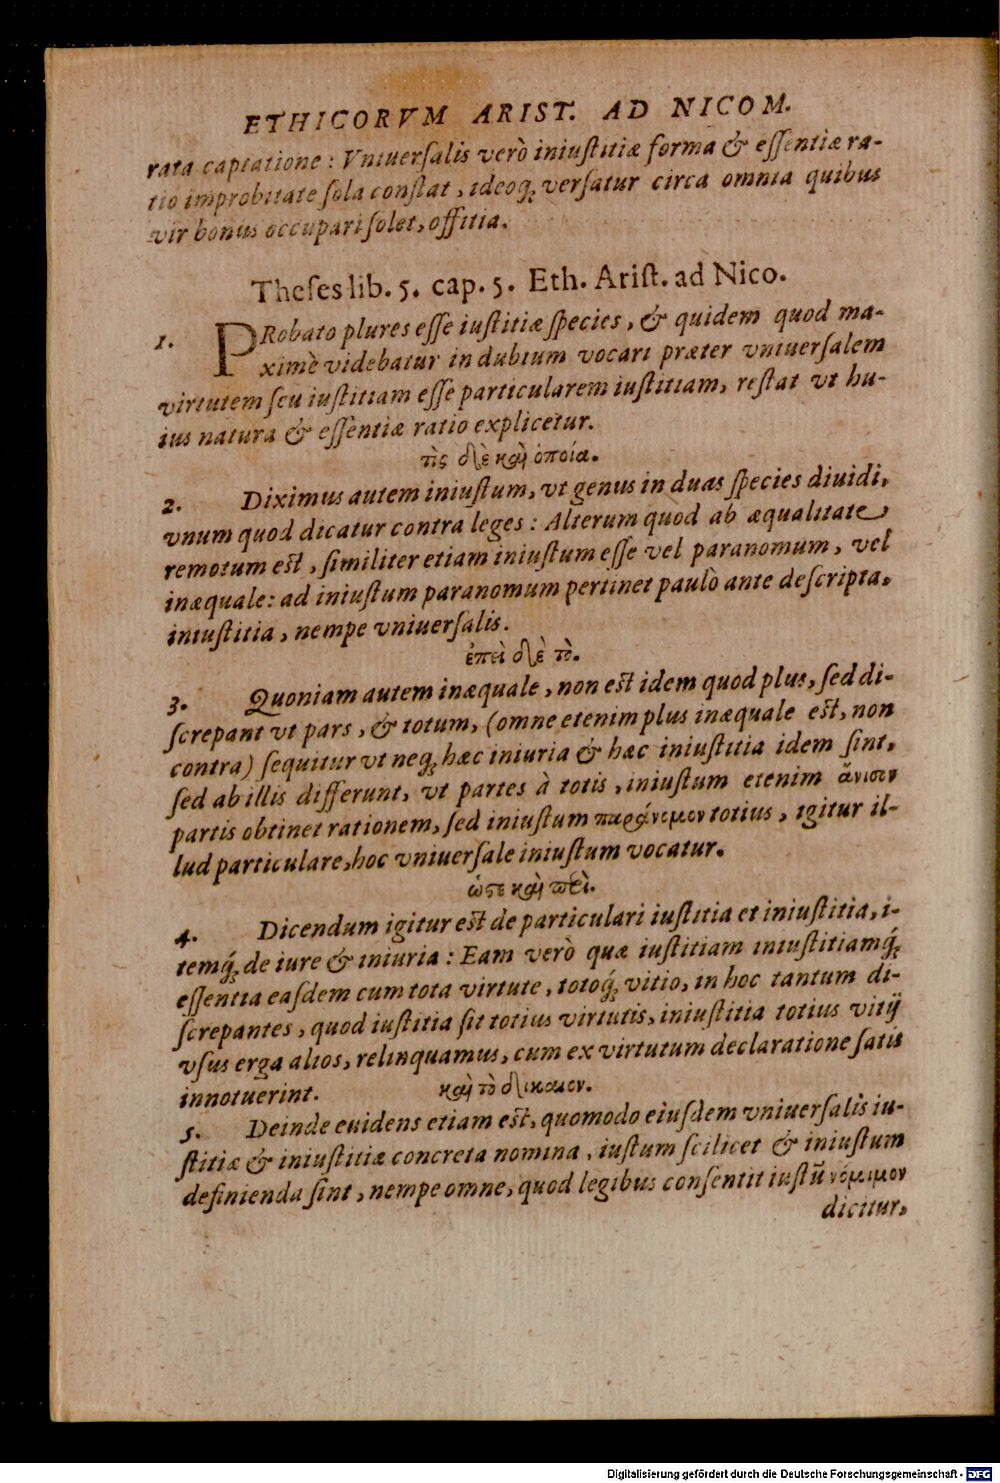 ETHICORVM ARIST. AD NICOM.
rata captatione: Vniuersalis verò iniustitiæ forma & essentiæ ra-
tio improbitate sola constat, ideoq; versatur circa omnia quibus
vir bonus occupari solet, offitia.
Theses lib. 5. cap. 5. Eth. Arist. ad Nico.
1. PRobato plures esse iustitiæ species, & quidem quod ma-
ximè videbatur in dubium vocari præter vniuersalem
virtutem seu iustitiam esse particularem iustitiam, restat vt hu-
ius natura & essentiæ ratio explicetur.
τὶς δὲ καὶ ὁποία.
2. Diximus autem iniustum, vt genus in duas species diuidi,
vnum quod dicatur contra leges: Alterum quod ab æqualitate
remotum est, similiter etiam iniustum esse vel paranomum, vel
inæquale: ad iniustum paranomum pertinet paulò ante descripta,
iniustitia, nempe vniuersalis.
ἐπεὶ δὲ τὸ.
3. Quoniam autem inæquale, non est idem quod plus, sed di-
screpant vt pars, & totum, (omne etenim plus inæquale est, non
contra) sequitur vt neq; hæc iniuria & hæc iniustitia idem sint,
sed ab illis differunt, vt partes à totis, iniustum etenim ἄνισον
partis obtinet rationem, sed iniustum παράνομον totius, igitur il-
lud particulare, hoc vniuersale iniustum vocatur.
ὡστε καὶ περὶ.
4. Dicendum igitur est de particulari iustitia et iniustitia, i-
temq́; de iure & iniuria: Eam verò quæ iustitiam iniustitiamq́;
essentia easdem cum tota virtute, totoq́; vitio, in hoc tantum di-
screpantes, quod iustitia sit totius virtutis, iniustitia totius vitij
vsus erga alios, relinquamus, cum ex virtutum declaratione satis
innotuerint. καὶ τὸ δίκαιον.
5. Deinde euidens etiam est, quomodo eiusdem vniuersalis iu-
stitiæ & iniustitiæ concreta nomina, iustum scilicet & iniustum
definienda sint, nempe omne, quod legibus consentit iustũ νόμιμον
dicitur,
Digitalisierung gefördert durch die Deutsche Forschungsgemeinschaft - DFG